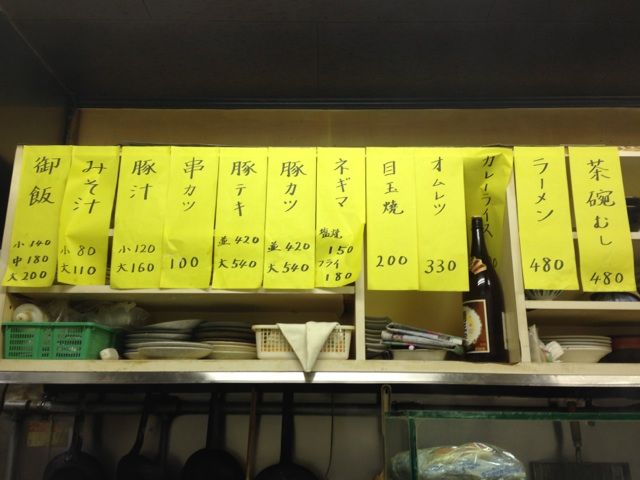 御飯
小 140
中 180
大 200
みそ汁
小 80
大 110
豚汁
小 120
大 160
串カツ
100
豚テキ
並 420
大 540
豚カツ
並 420
大 540
ネギマ
塩焼
150
フライ
180
目玉焼
200
オムレツ
330
カレーライス
ラーメン
480
茶碗むし
480